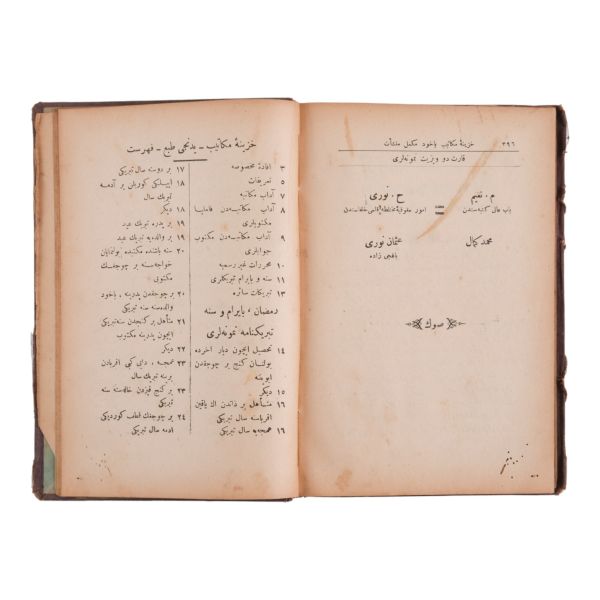 ٣٩٦ خزينهٔ مكاتيب ياخود مكمل منشآت
قارت دو ويزيت نمونه‌لرى
م . نعيم
باب عالى
ح . نورى
امور حقوقيهٔ
محمد كمال
عثمان نورى
زاده
صوك
خزينهٔ مكاتيب — يدنجى طبع — فهرست
٣ افادهٔ مخصوصه
٥ تعريفات
٧ آداب مكاتبه
٨ آداب مكاتبه‌دن فاميليا
مكتوبلرى
٩ آداب مكاتبه‌دن مكتوب
جوابلرى
١٠ محررات غير رسميه
١١ سنه و بايرام تبريكلرى
١٣ تبريكات سائره
رمضان ، بايرام و سنه
تبريكنامه نمونه‌لرى
١٤ تحصيل ايچون ديار آخرده
بولنان كنج بر چوجقدن
ابويننه
١٥ ديكر
١٦ متأهل بر ذاتدن اك ياقين
اقرباسنه سال تبريكى
١٦ عمجه‌يه سال تبريكى
١٧ بر دوسته سال تبريكى
١٨ اييلكى كوريلن بر آدمه
تبريك سال
١٨ ديكر
١٩ بر پدره تبريك عيد
١٩ بر والده‌يه تبريك عيد
٢٠ سنه باشنده مكتبده بولنمايان
خواجه‌سنه بر چوجغك
مكتوبى
٢٠ بر چوجقدن پدرينه ، ياخود
والده‌سنه سنه تبريكى
٢١ متأهل بر كنجدن سنه تبريكى
ايچون پدرينه مكتوب
٢٢ ديكر
٢٣ عمجه‌سنه ، دايى كبى اقربادن
برينه تبريك سال
٢٣ بر كنج قيزدن خاله‌سنه سنه
تبريكى
٢٤ بر چوجغك لطف كورديكى
آدمه سال تبريكى